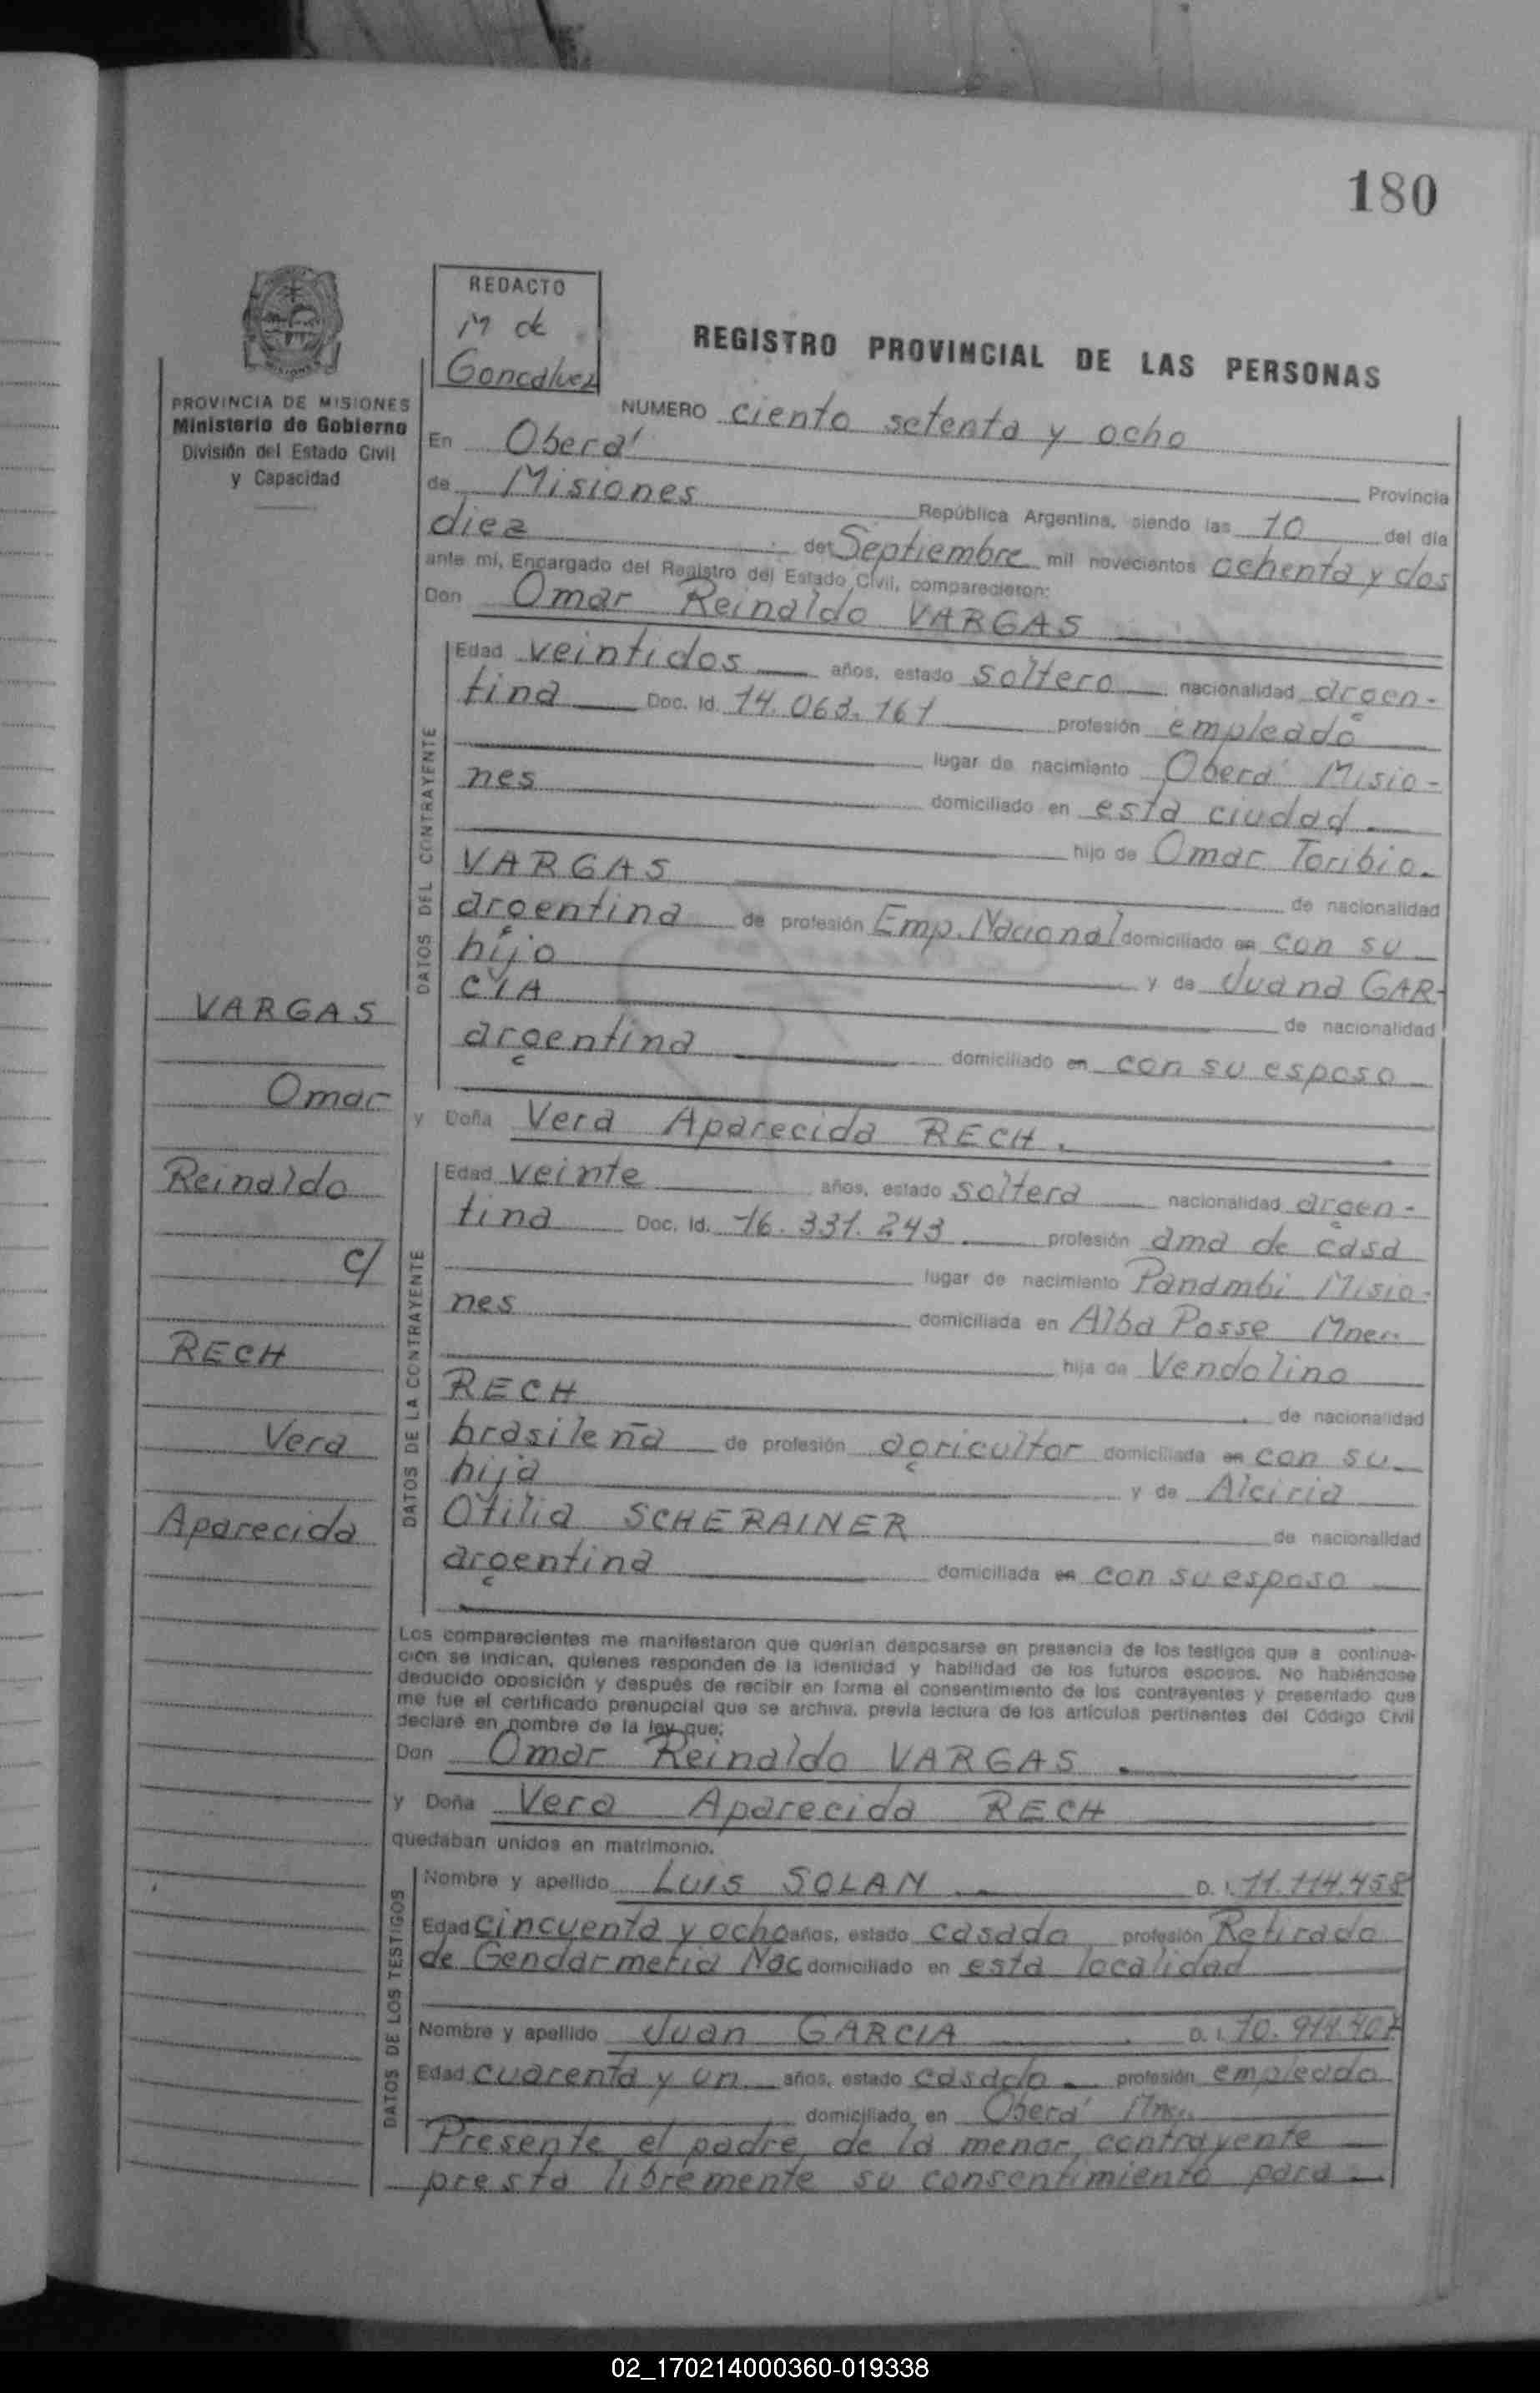 180
REDACTO
M de
Goncalvez
REGISTRO PROVINCIAL DE LAS PERSONAS
PROVINCIA DE MISIONES
Ministerio de Gobierno
División del Estado Civil
y Capacidad
NUMERO ciento setenta y ocho
En Oberá
Provincia
de Misiones República Argentina, siendo las 10 del día
diez de Septiembre mil novecientos ochenta y dos
ante mí, Encargado del Registro del Estado Civil, comparecieron:
Don Omar Reinaldo VARGAS
DATOS DEL CONTRAYENTE
Edad veintidos años, estado soltero nacionalidad argen-
tina Doc. Id. 14.063.161 profesión empleado
lugar de nacimiento Oberá Misio-
nes domiciliado en esta ciudad
hijo de Omar Toribio
VARGAS de nacionalidad
argentina de profesión Emp. Nacional domiciliado en con su
hijo y de Juana GAR-
CIA de nacionalidad
argentina domiciliado en con su esposo
y Doña Vera Aparecida RECH.
DATOS DE LA CONTRAYENTE
Edad veinte años, estado soltera nacionalidad argen-
tina Doc. Id. 16.331.243 profesión ama de casa
lugar de nacimiento Panambi Misio-
nes domiciliada en Alba Posse Mnes.
hija de Vendolino
RECH de nacionalidad
brasileña de profesión agricultor domiciliada en con su
hija y de Alciria
Otilia SCHERAINER de nacionalidad
argentina domiciliada en con su esposo
VARGAS
Omar
Reinaldo
c/
RECH
Vera
Aparecida
Los comparecientes me manifestaron que querían desposarse en presencia de los testigos que a continua-
ción se indican, quienes responden de la identidad y habilidad de los futuros esposos. No habiéndose
deducido oposición y después de recibir en forma el consentimiento de los contrayentes y presentado que
me fue el certificado prenupcial que se archiva, previa lectura de los artículos pertinentes del Código Civil
declaré en nombre de la ley que:
Don Omar Reinaldo VARGAS
y Doña Vera Aparecida RECH
quedaban unidos en matrimonio.
DATOS DE LOS TESTIGOS
Nombre y apellido Luis SOLAN D. I. 11.114.458
Edad cincuenta y ocho años, estado casado profesión Retirado
de Gendarmeria Nac domiciliado en esta localidad
Nombre y apellido Juan GARCIA D. I.
Edad cuarenta y un años, estado casado profesión empleado
domiciliado en Oberá Mnes.
Presente el padre de la menor contrayente
presta libremente su consentimiento para
02_170214000360-019338